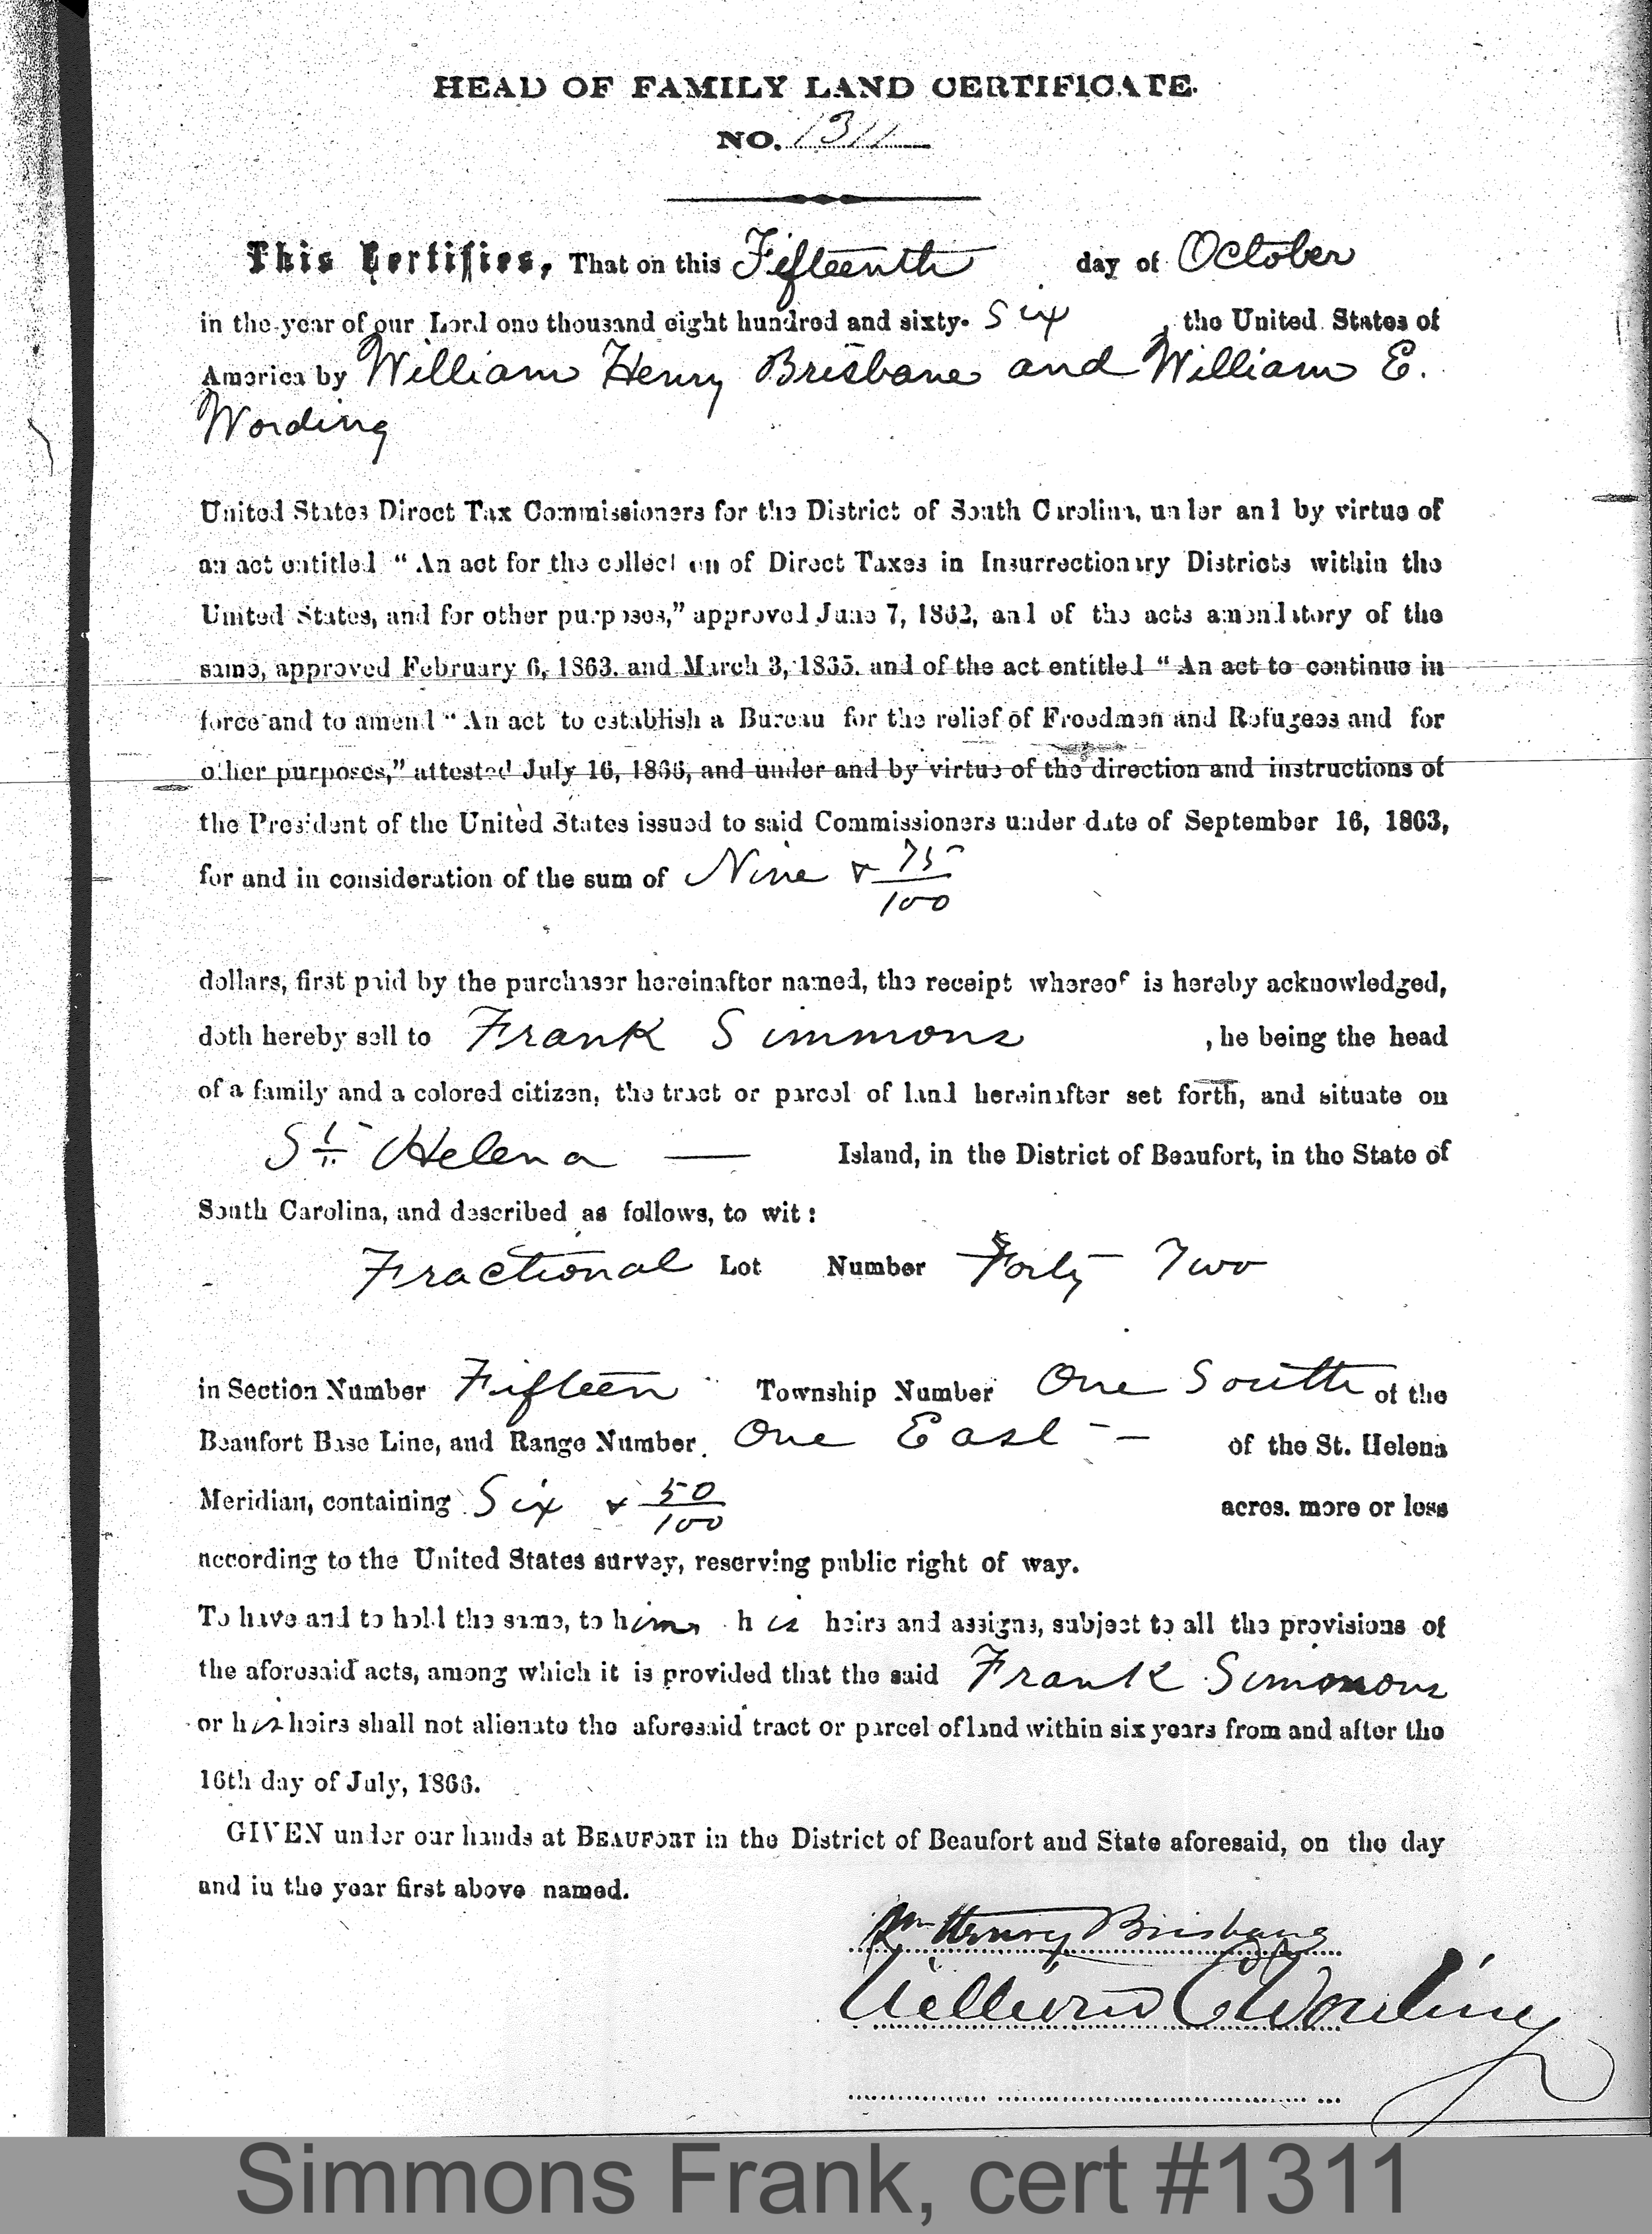 HEAD OF FAMILY LAND CERTIFICATE.
NO. 1311
This Certifies, That on this Fifteenth day of October
in the year of our Lord one thousand eight hundred and sixty- Six , the United States of
America by William Henry Brisbane and William E.
Wording
United States Direct Tax Commissioners for the District of South Carolina, under and by virtue of
an act entitled "An act for the collection of Direct Taxes in Insurrectionary Districts within the
United States, and for other purposes," approved June 7, 1862, and of the acts amendatory of the
same, approved February 6, 1863. and March 3, 1865. and of the act entitled "An act to continue in
force and to amend "An act to establish a Bureau for the relief of Freedmen and Refugees and for
other purposes," attested July 16, 1866, and under and by virtue of the direction and instructions of
the President of the United States issued to said Commissioners under date of September 16, 1863,
for and in consideration of the sum of Nine & 75/100
dollars, first paid by the purchaser hereinafter named, the receipt whereof is hereby acknowledged,
doth hereby sell to Frank Simmons , he being the head
of a family and a colored citizen, the tract or parcel of land hereinafter set forth, and situate on
St. Helena — Island, in the District of Beaufort, in the State of
South Carolina, and described as follows, to wit:
Fractional Lot Number Forty Two
in Section Number Fifteen Township Number One South of the
Beaufort Base Line, and Range Number One East — of the St. Helena
Meridian, containing Six & 50/100 acres. more or less
according to the United States survey, reserving public right of way.
To have and to hold the same, to him, his heirs and assigns, subject to all the provisions of
the aforesaid acts, among which it is provided that the said Frank Simmons
or his heirs shall not alienate the aforesaid tract or parcel of land within six years from and after the
16th day of July, 1866.
GIVEN under our hands at BEAUFORT in the District of Beaufort and State aforesaid, on the day
and in the year first above named.
Wm Henry Brisbane
William E Wording
Simmons Frank, cert #1311